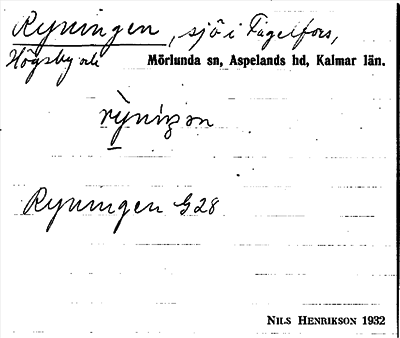 Ryningen, sjö i Fågelfors,
Högsby och Mörlunda sn, Aspelands hd, Kalmar län.
Ryningen G28
NILS HENRIKSON 1932